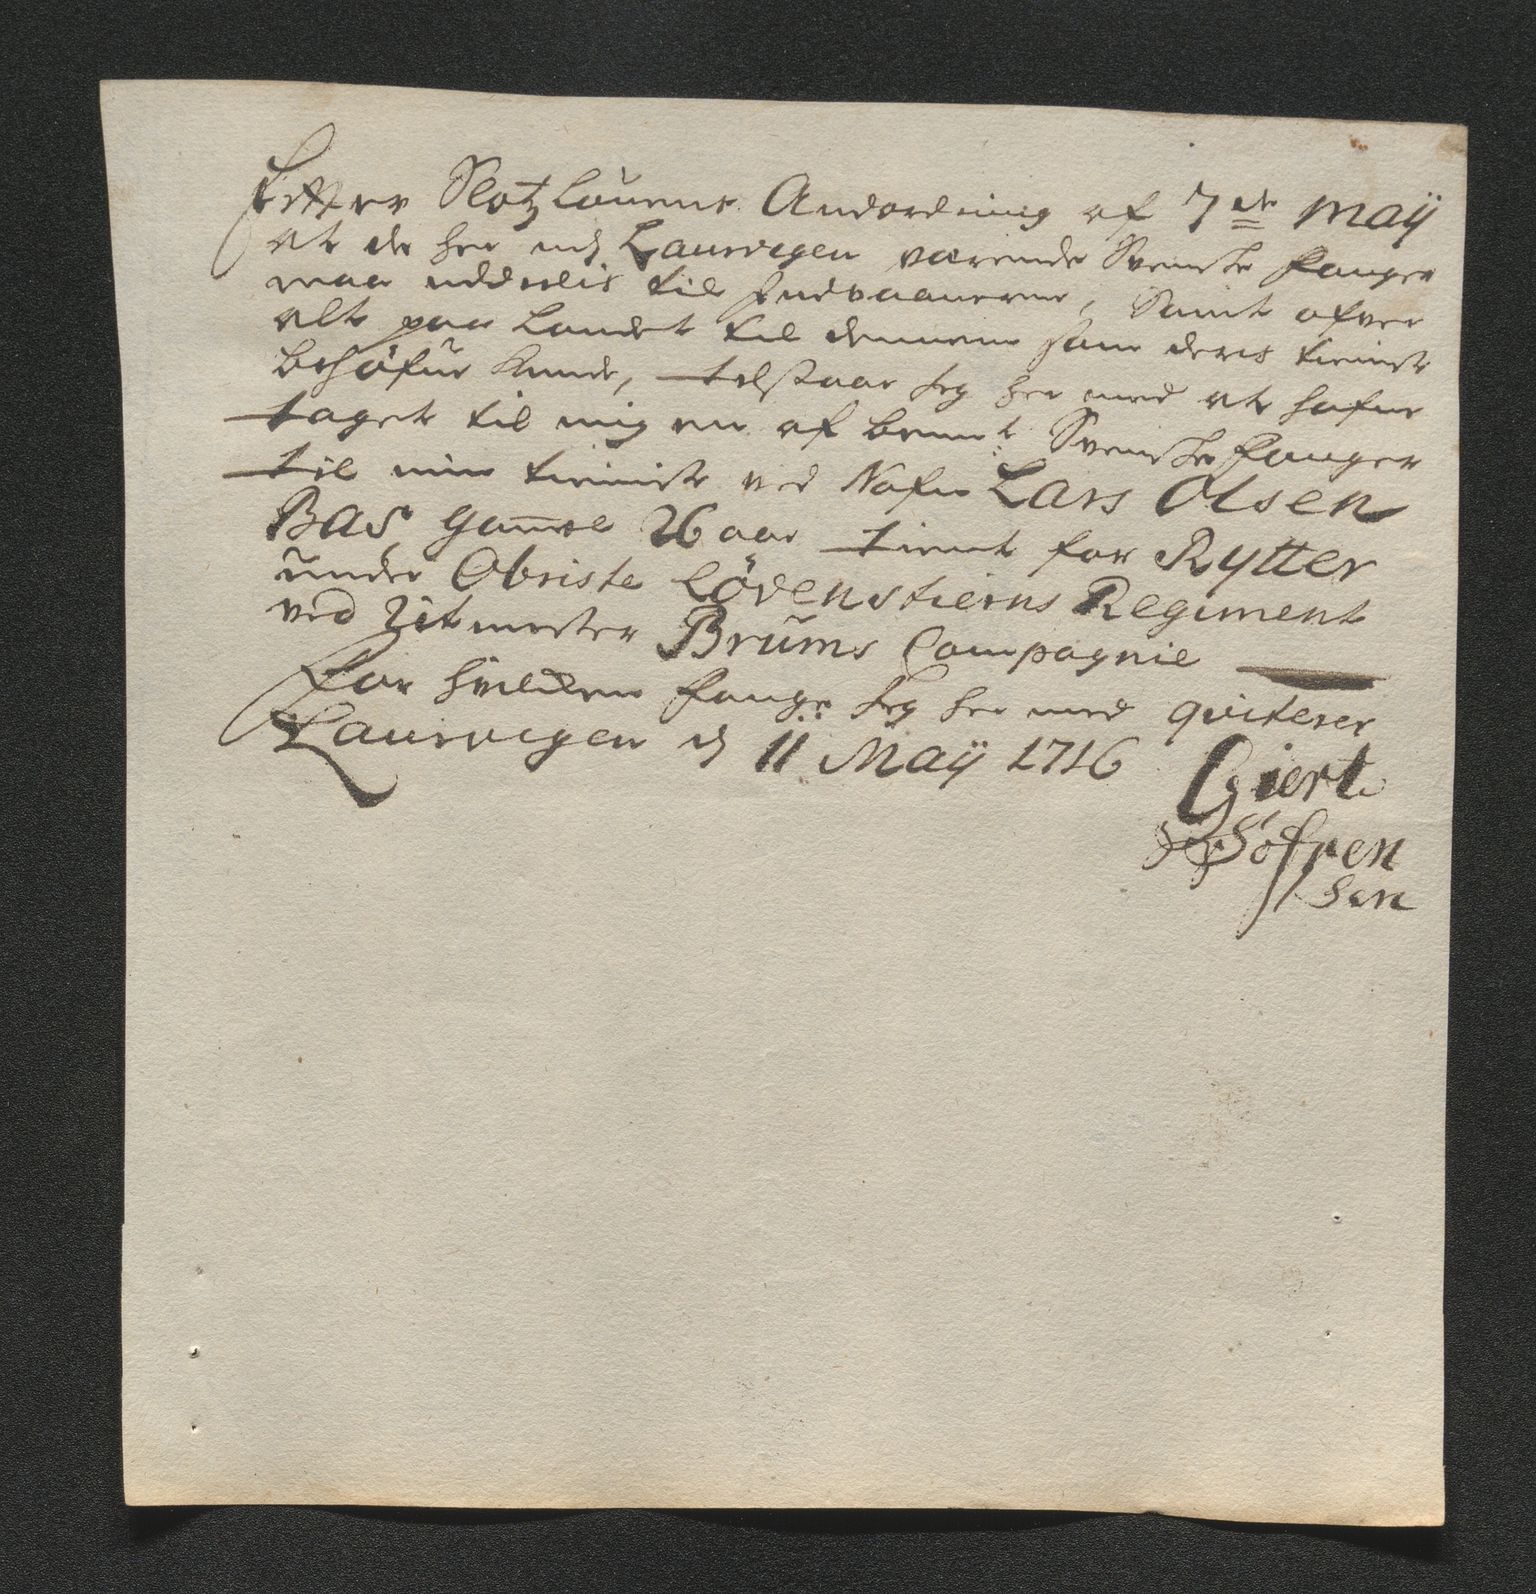 Efter Slotzlouens Anordning af 7de Maÿ
at de her udj Laurvigen værende Svenske fanger
maa uddelis til Indvaanerne, Samt ofver
alt paa Landet til dennem som deris tienist
behöfue kunde, tilstaar Jeg her med at hafue
taget til mig en af bemt: Svenske fanger
til min tieniste ved Nafn Lars Olsen
Bas, gammel 26 aar tient for Rytter
under Obriste Lövenstierns Regiment
ved Ritmester Brums Compagnie
for hvilcken fange Jeg her med qviterer
Laurvigen d 11 Maÿ 1716
Giert
Söfren
Sen